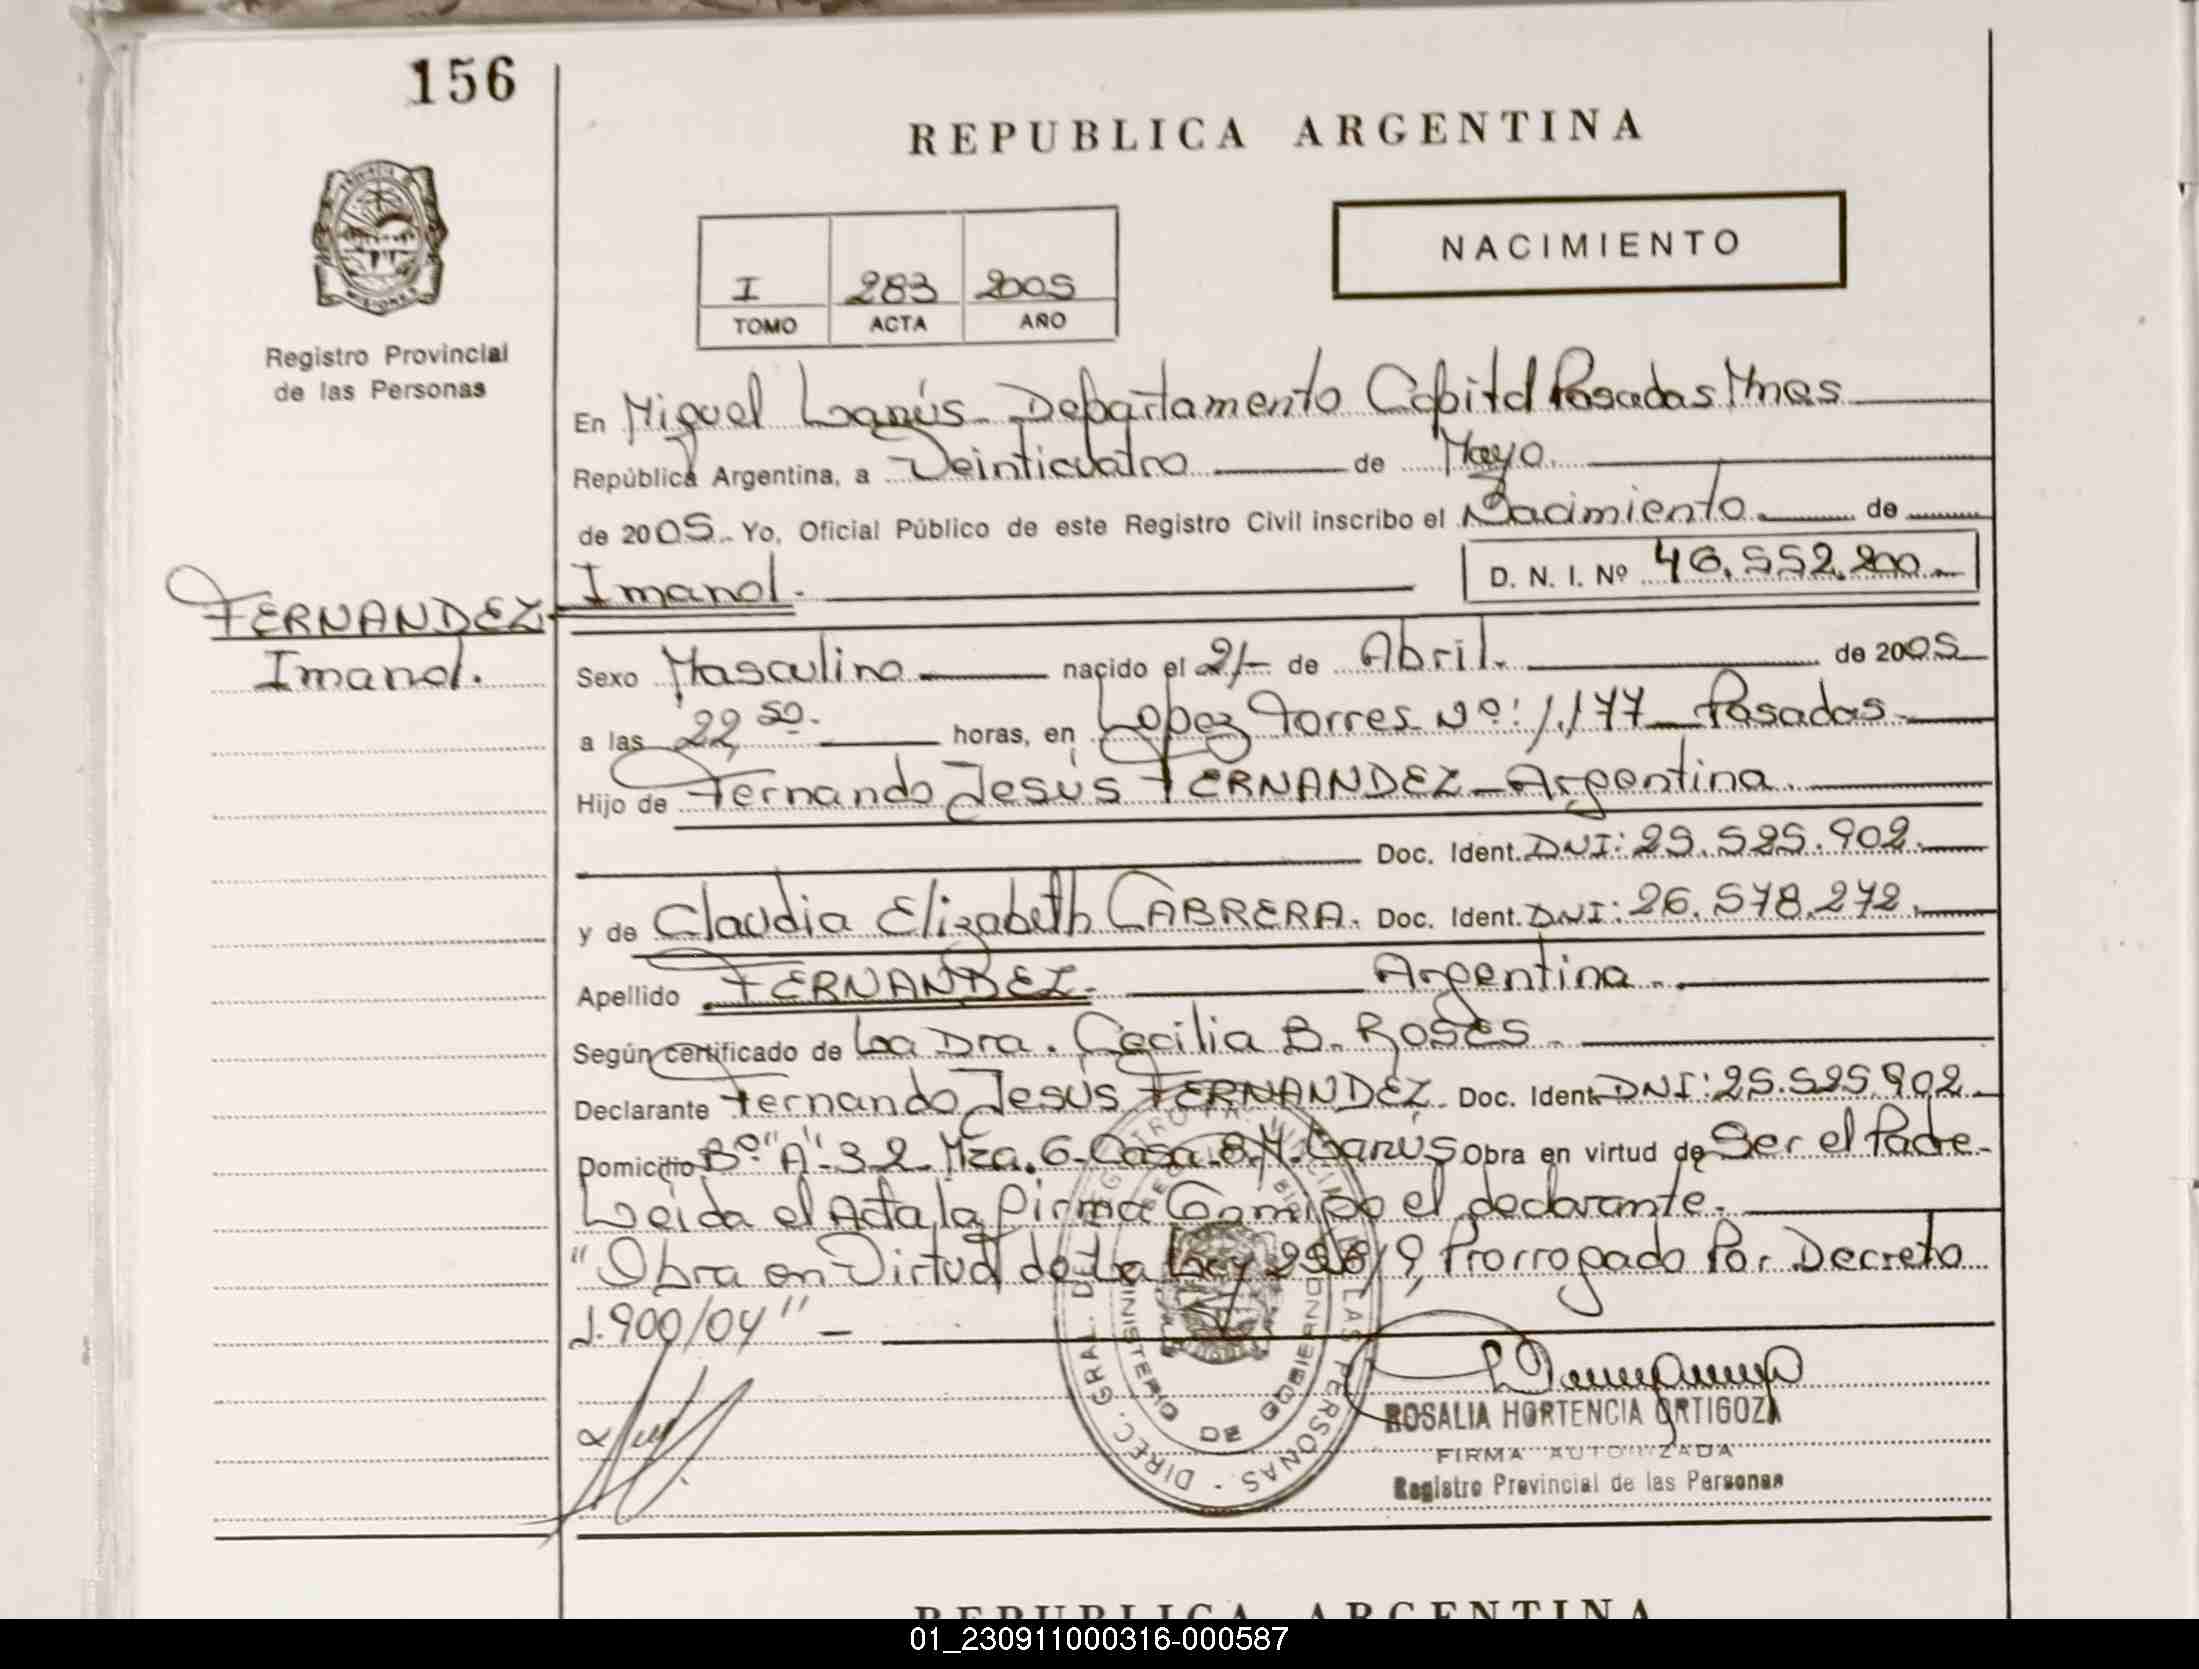 156
REPUBLICA ARGENTINA
NACIMIENTO
I 283 2005
TOMO ACTA AÑO
Registro Provincial
de las Personas
En Miguel Lanús - Departamento Capital Posadas Mnes
República Argentina, a Veinticuatro de Mayo.
de 2005. Yo, Oficial Público de este Registro Civil inscribo el Nacimiento de
Imanol.
D. N. I. Nº 46.552.200.-
FERNANDEZ
Imanol.
Sexo Masculino nacido el 21- de Abril. de 2005
a las 22,50. horas, en Lopez Torres Nº: 1.177 - Posadas
Hijo de Fernando Jesús FERNANDEZ - Argentina.
Doc. Ident. DNI: 25.525.902.
y de Claudia Elizabeth CABRERA. Doc. Ident. DNI: 26.578.272.
Apellido FERNANDEZ. Argentina.
Según certificado de La Dra. Cecilia B. Roses
Declarante Fernando Jesús FERNANDEZ. Doc. Ident. DNI: 25.525.902
Domicilio Bº "A"-32 Mza. 6- Casa 8. M. Lanús Obra en virtud de Ser el Padre-
Leida el Acta, la firma Conmigo el declarante.
"Obra en Virtud de La Ley 25.819, Prorrogado Por Decreto
1.900/04" -
DIREC. GRAL. DEL REGISTRO PROVINCIAL DE LAS PERSONAS -
MINISTERIO DE GOBIERNO
ROSALIA HORTENCIA ORTIGOZA
FIRMA AUTORIZADA
Registro Provincial de las Personas
REPUBLICA ARGENTINA
01_230911000316-000587